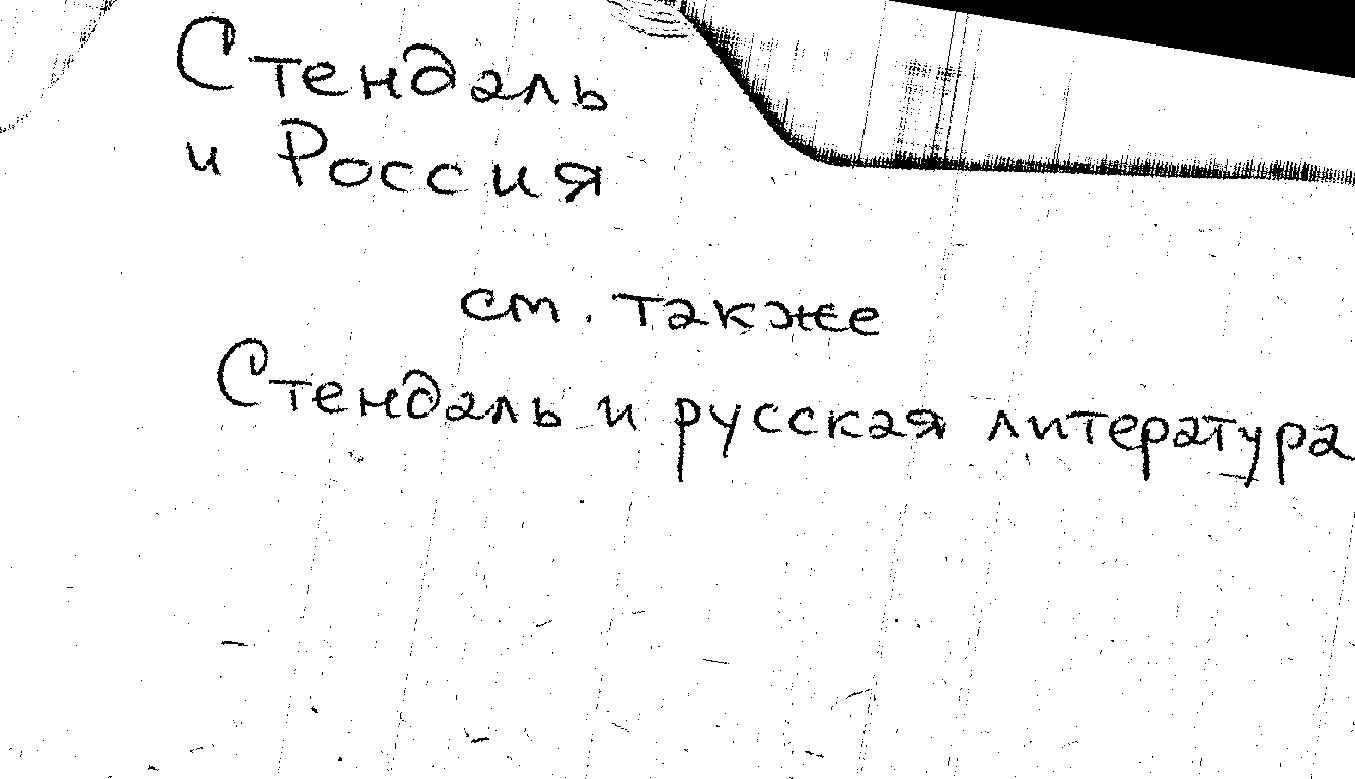 Стендаль
и Россия
ст. также
Стендаль и русская литература